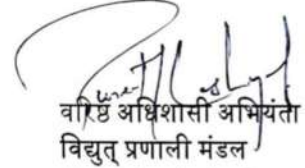 वरिष्ठ अधिशासी अभियंता
विद्युत् प्रणाली मंडल